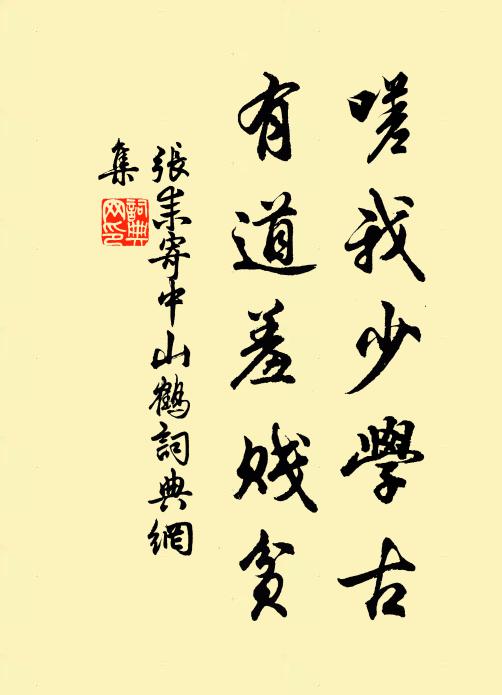 嗟我少學古
有道羞賤貧
張耒寄中山鶴詞典網
集
詞典
網印